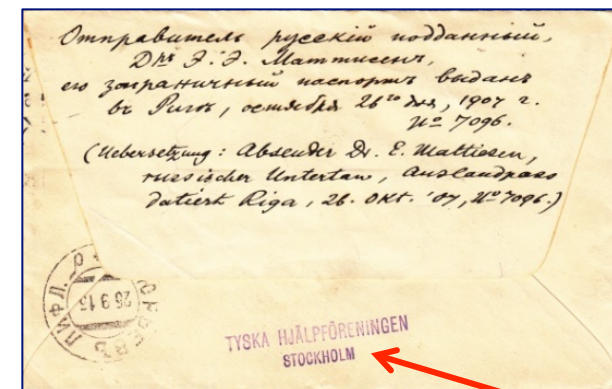 Отправитель русскій подданный,
Dr. Э. Э. Маттисенъ,
его заграничный паспортъ выданъ
въ Ригѣ, октября 26го дня, 1907 г.
№ 7096.
(Uebersetzung: Absender Dr. E. Mattiesen,
russischer Untertan, Auslandpass
datiert Riga, 26. Okt. '07, № 7096.)
ЮРЬЕВЪ ЛИФЛ.
26 9 15
TYSKA HJÄLPFÖRENINGEN
STOCKHOLM